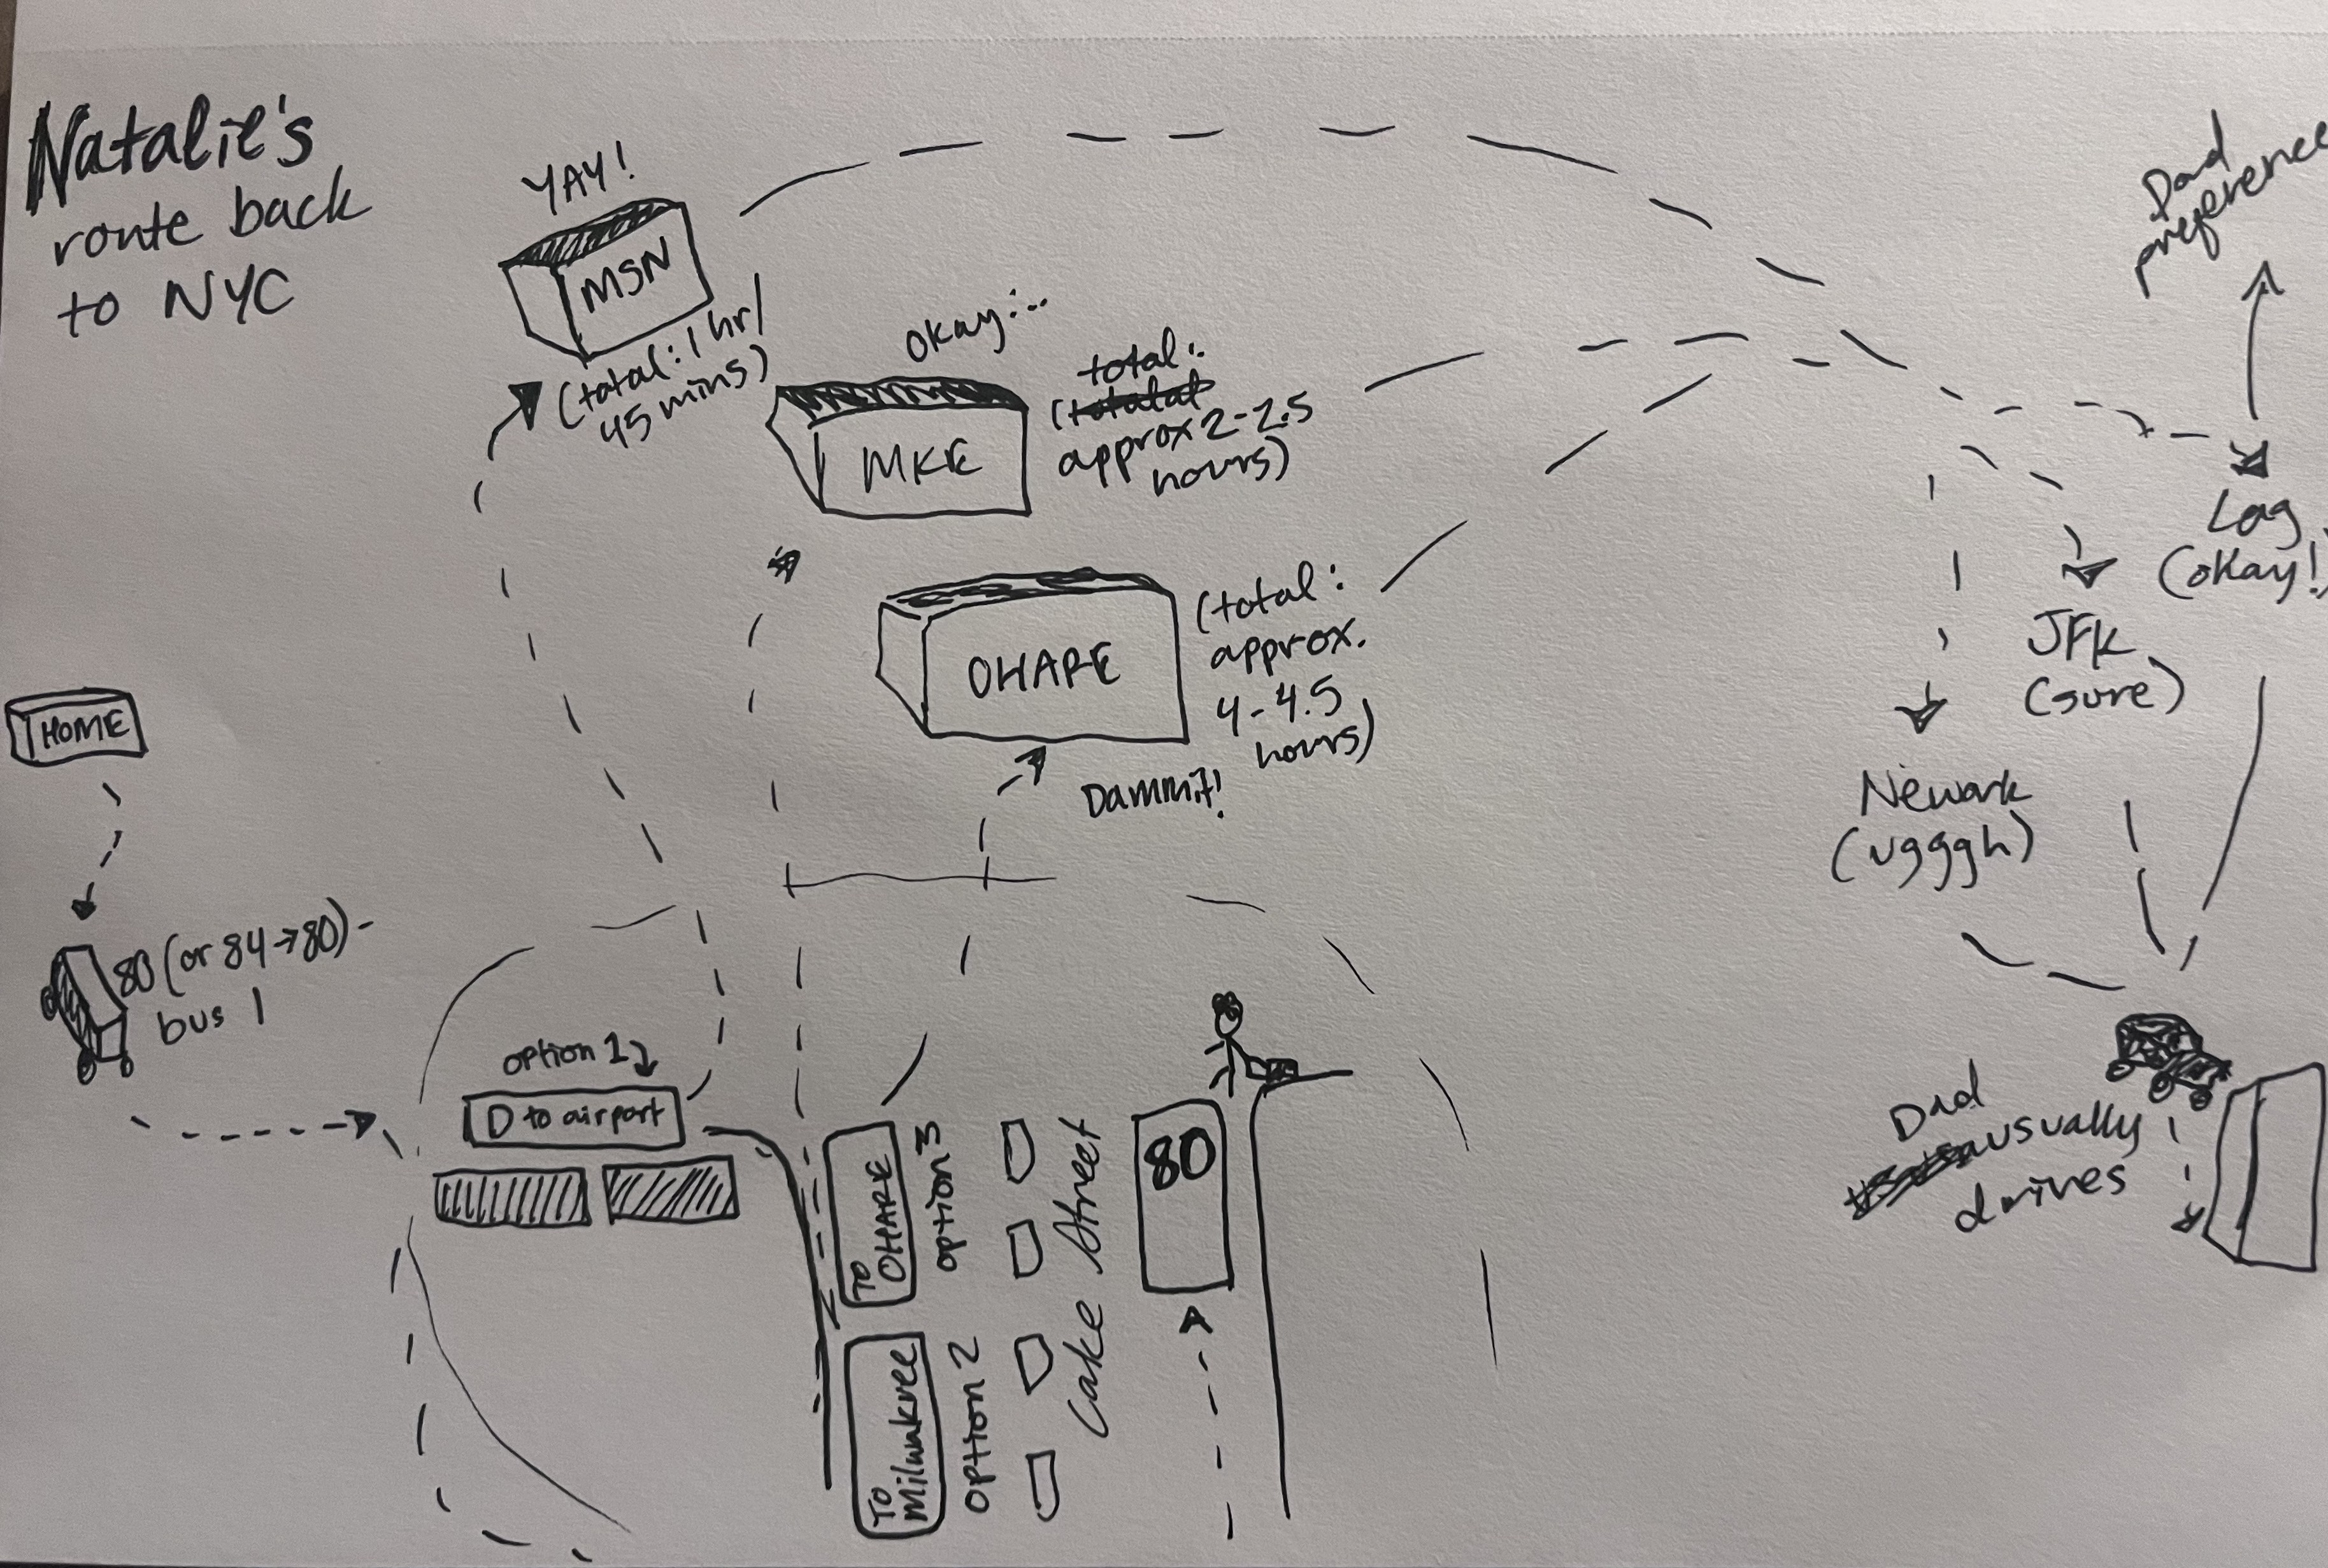 Natalie's
route back
to NYC
YAY!
MSN
(total: 1 hr/
45 mins)
okay...
MKE
total:
approx 2-2.5
hours)
OHARE
(total:
approx.
4-4.5
hours)
Dammit!
Dad
preference
Lag
(okay!)
JFK
(sure)
Newark
(ugggh)
HOME
80 (or 84→80)-
bus 1
option 1
D to airport
TO
OHARE
option 3
TO
Milwakree
option 2
Lake Street
80
Dad
usually
drives